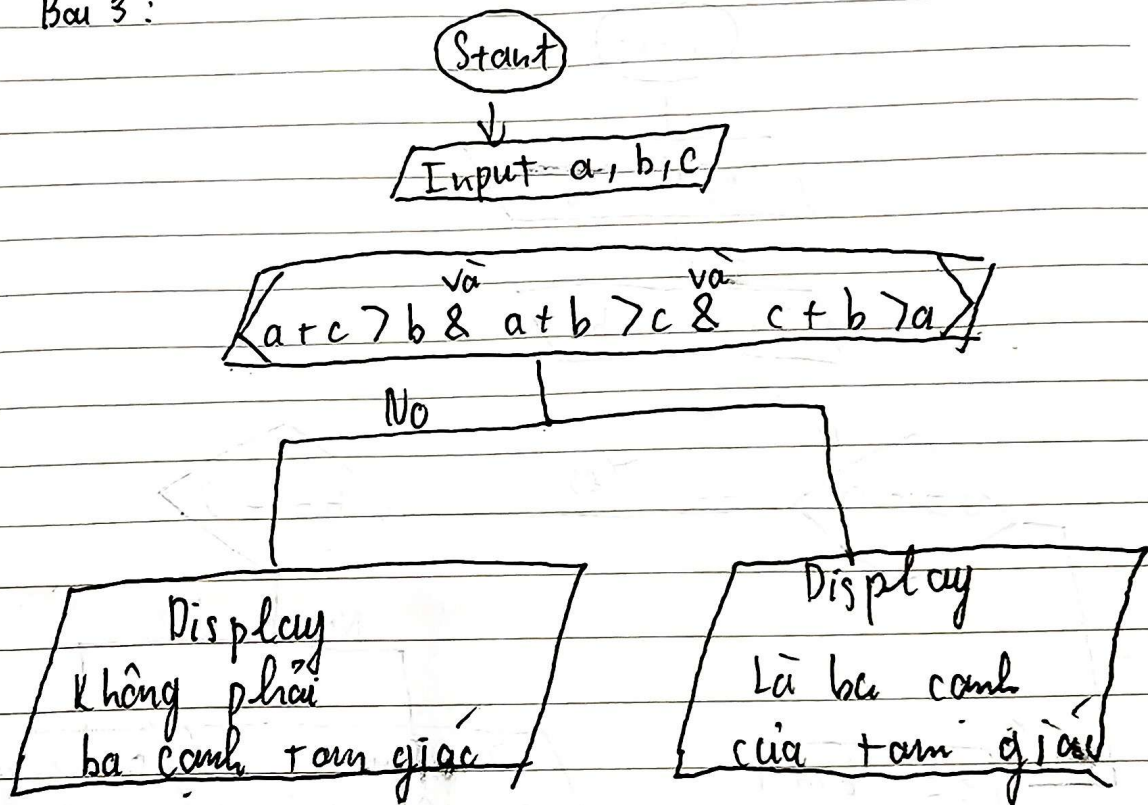 Bài 3 :
Start
Input a, b, c
và và
a + c > b & a + b > c & c + b > a
No
Display
Không phải
ba cạnh tam giác
Display
Là ba cạnh
của tam giác